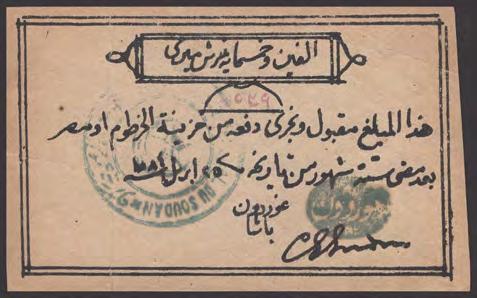 الفين وخمسماية غرش ميرى
هذا المبلغ مقبول ويجرى دفعه من خزينة الخرطوم او مصر
بعد مضى ستة شهور من تاريخه ٢٥ ابريل سنة ١٨٨٤
غوردون
باشا
DU SOUDAN